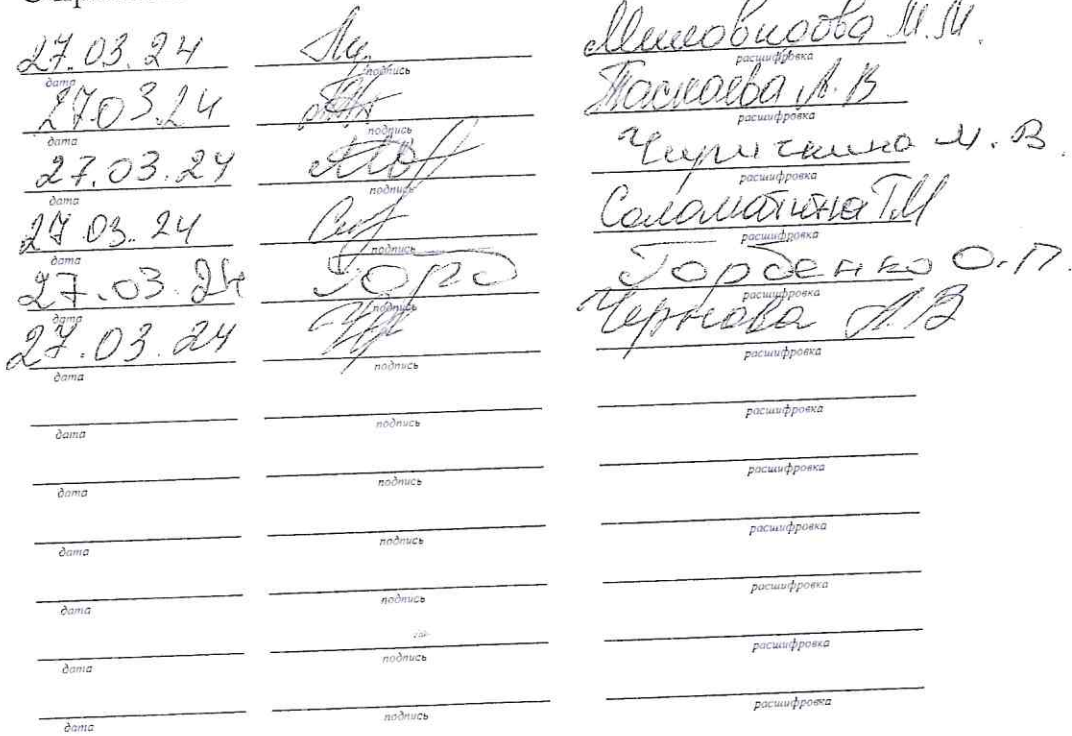 27.03.24 М.М.
дата подпись расшифровка
27.03.24 Таскаева А.В
дата подпись расшифровка
27.03.24 М.В.
дата подпись расшифровка
27.03.24 Соломатина Т.М
дата подпись расшифровка
27.03.24 Горб Горбенко О.П.
дата подпись расшифровка
27.03.24 Чернова А.В
дата подпись расшифровка
дата подпись расшифровка
дата подпись расшифровка
дата подпись расшифровка
дата подпись расшифровка
дата подпись расшифровка
дата подпись расшифровка